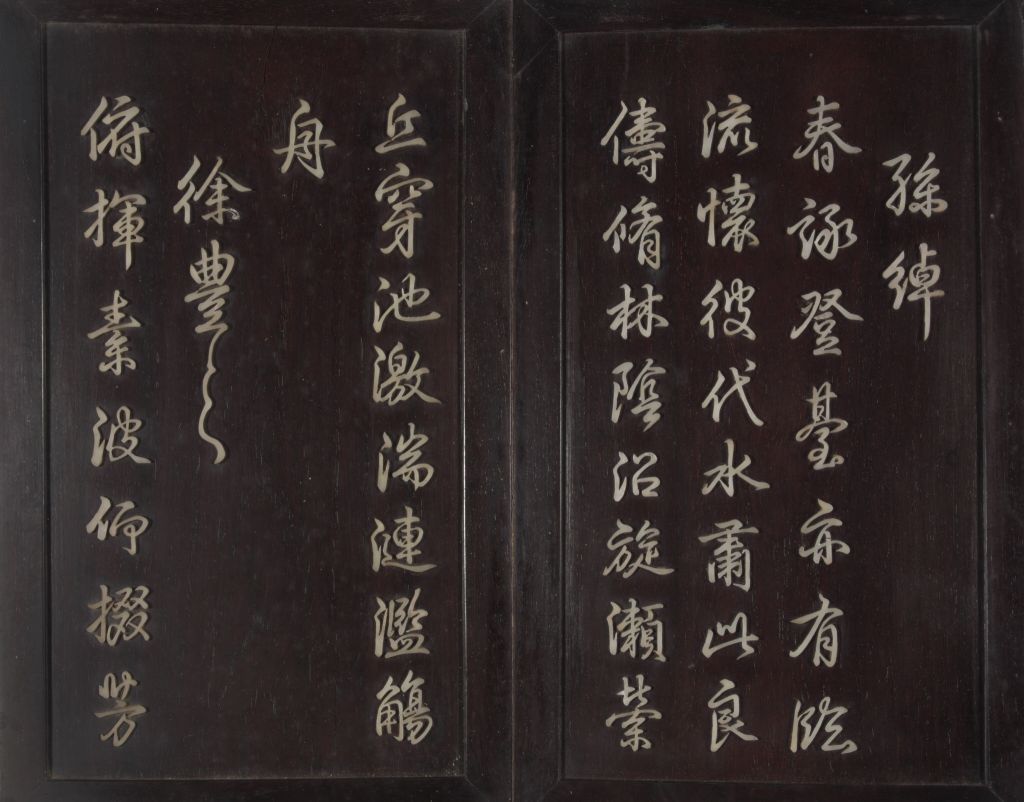 孫綽
春詠登臺亦有臨
流懷彼伐水肅此良
儔脩林陰沼旋瀨縈
丘穿池激湍漣濫觴
舟
徐豐之
俯揮素波仰掇芳